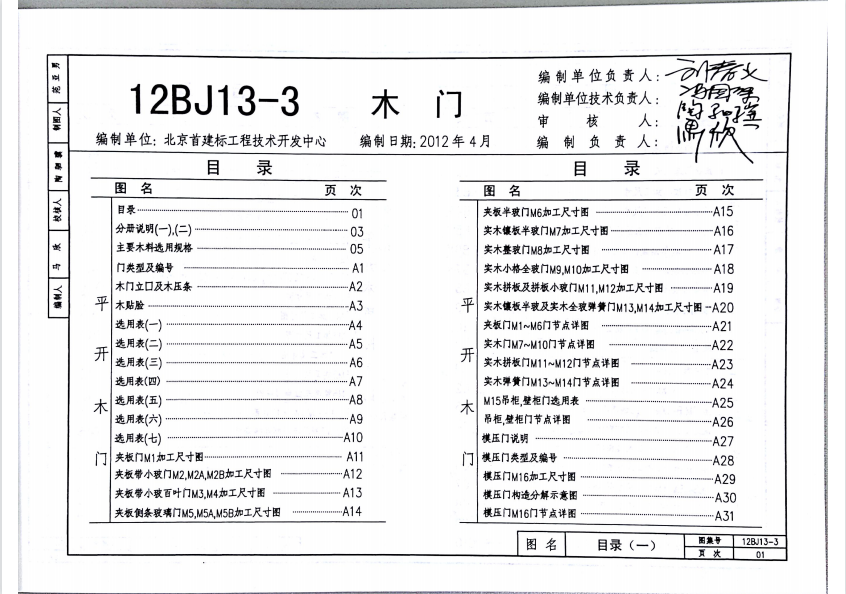 12BJ13-3 木 门
编制单位: 北京首建标工程技术开发中心 编制日期: 2012 年 4 月
编制单位负责人:
编制单位技术负责人:
审 核 人:
编 制 负 责 人:
制图人
校核人
编制人
目 录
图 名 页 次
目录 01
分册说明(一),(二) 03
主要木料选用规格 05
平开木门
门类型及编号 A1
木门立口及木压条 A2
木贴脸 A3
选用表(一) A4
选用表(二) A5
选用表(三) A6
选用表(四) A7
选用表(五) A8
选用表(六) A9
选用表(七) A10
夹板门M1加工尺寸图 A11
夹板带小玻门M2,M2A,M2B加工尺寸图 A12
夹板带小玻百叶门M3,M4加工尺寸图 A13
夹板侧条玻璃门M5,M5A,M5B加工尺寸图 A14
目 录
图 名 页 次
平开木门
夹板半玻门M6加工尺寸图 A15
实木镶板半玻门M7加工尺寸图 A16
实木整玻门M8加工尺寸图 A17
实木小格全玻门M9,M10加工尺寸图 A18
实木拼板及拼板小玻门M11,M12加工尺寸图 A19
实木镶板半玻及实木全玻弹簧门M13,M14加工尺寸图 A20
夹板门M1~M6门节点详图 A21
实木门M7~M10门节点详图 A22
实木拼板门M11~M12门节点详图 A23
实木弹簧门M13~M14门节点详图 A24
M15吊柜,壁柜门选用表 A25
吊柜,壁柜门节点详图 A26
模压门说明 A27
模压门类型及编号 A28
模压门M16加工尺寸图 A29
模压门构造分解示意图 A30
模压门M16门节点详图 A31
图 名 目录（一） 图集号 12BJ13-3
页 次 01